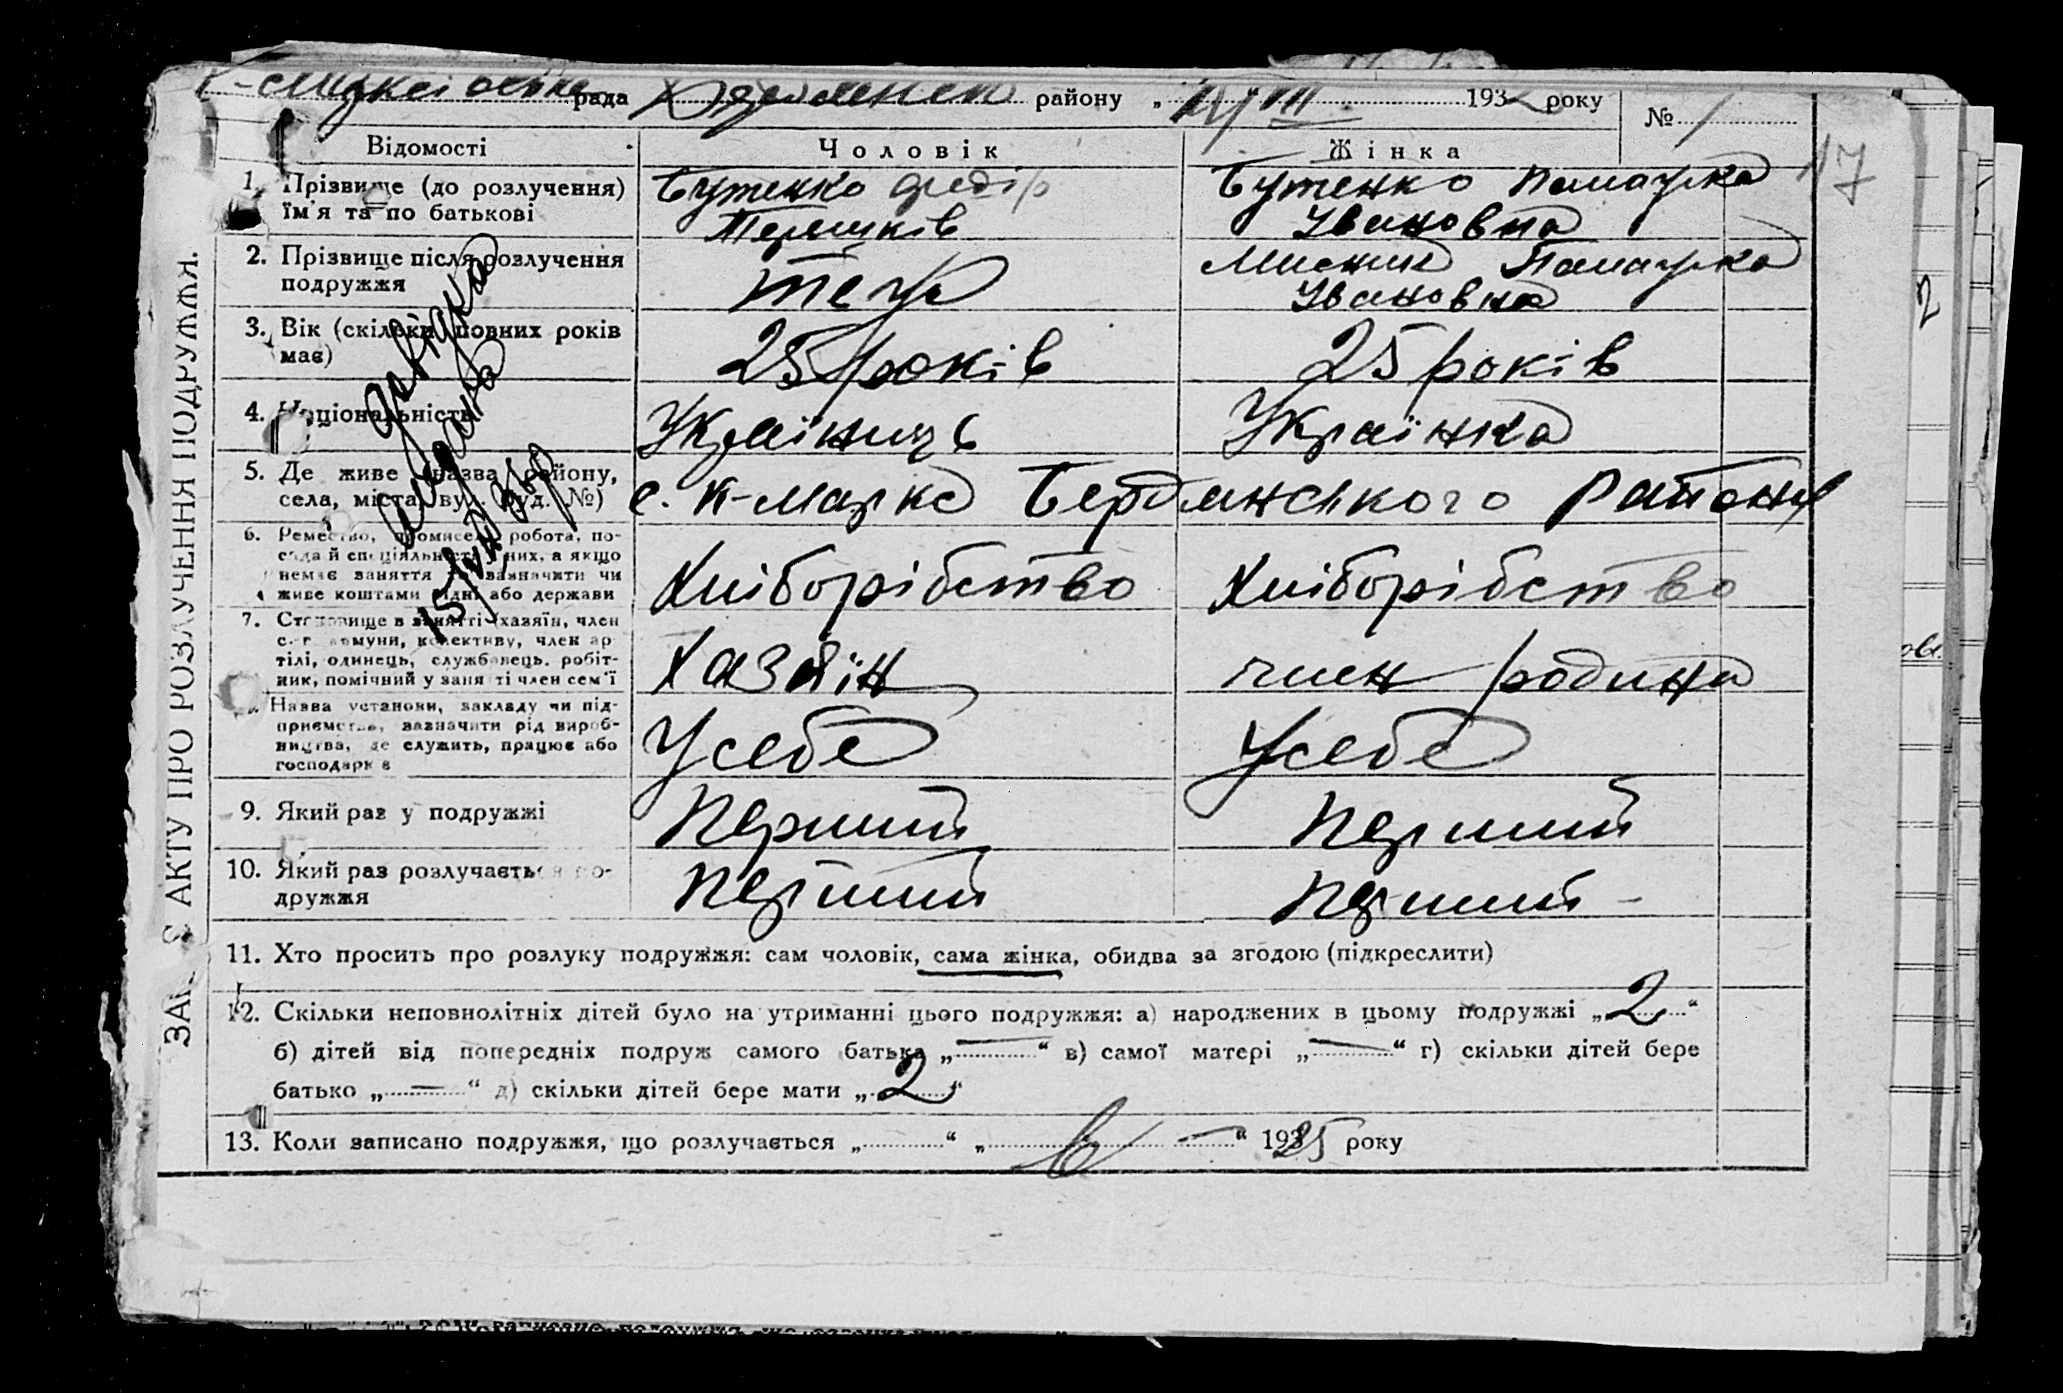 рада районy „ III 1932 року № 1
Відомості Чоловік Жінка
17
1. Прізвище (до розлучення) їм'я та по батькові
Бутенко Федір
Бутенко Памажка
Івановна
2. Прізвище після розлучення подружжя
теж
Памажка
Івановна
3. Вік (скільки повних років має)
25 років
25 років
4. Національність
Українець
Українка
5. Де живе (назва району, села, міста, вул. буд. №)
с. К-Маркс Бердянського Району
6. Ремество, промисел, робота, посада й спеціяльність них, а якщо немає заняття то зазначити чи живе коштами рідні або держави
Хліборібство
Хліборібство
7. Становище в занятті (хазяїн, член с.-г. комуни, колективу, член артілі, одинець, службовець, робітник, помічний у занятті член сем'ї
Хазяїн
член родина
Назва установи, закладу чи підприємства, зазначити рід виробництва, де служить, працює або господарює
У себе
У себе
9. Який раз у подружжі
Перший
Перший
10. Який раз розлучається подружжя
Перший
Перший
11. Хто просить про розлуку подружжя: сам чоловік, сама жінка, обидва за згодою (підкреслити)
12. Скільки неповнолітніх дітей було на утриманні цього подружжя: а) народжених в цьому подружжі „2“
б) дітей від попередніх подруж самого батька „—“ в) самої матері „—“ г) скільки дітей бере
батько „—“ д) скільки дітей бере мати „2“
13. Коли записано подружжя, що розлучається „ “ „ “ 1925 року
АКТУ ПРО РОЗЛУЧЕННЯ ПОДРУЖЖЯ.
2